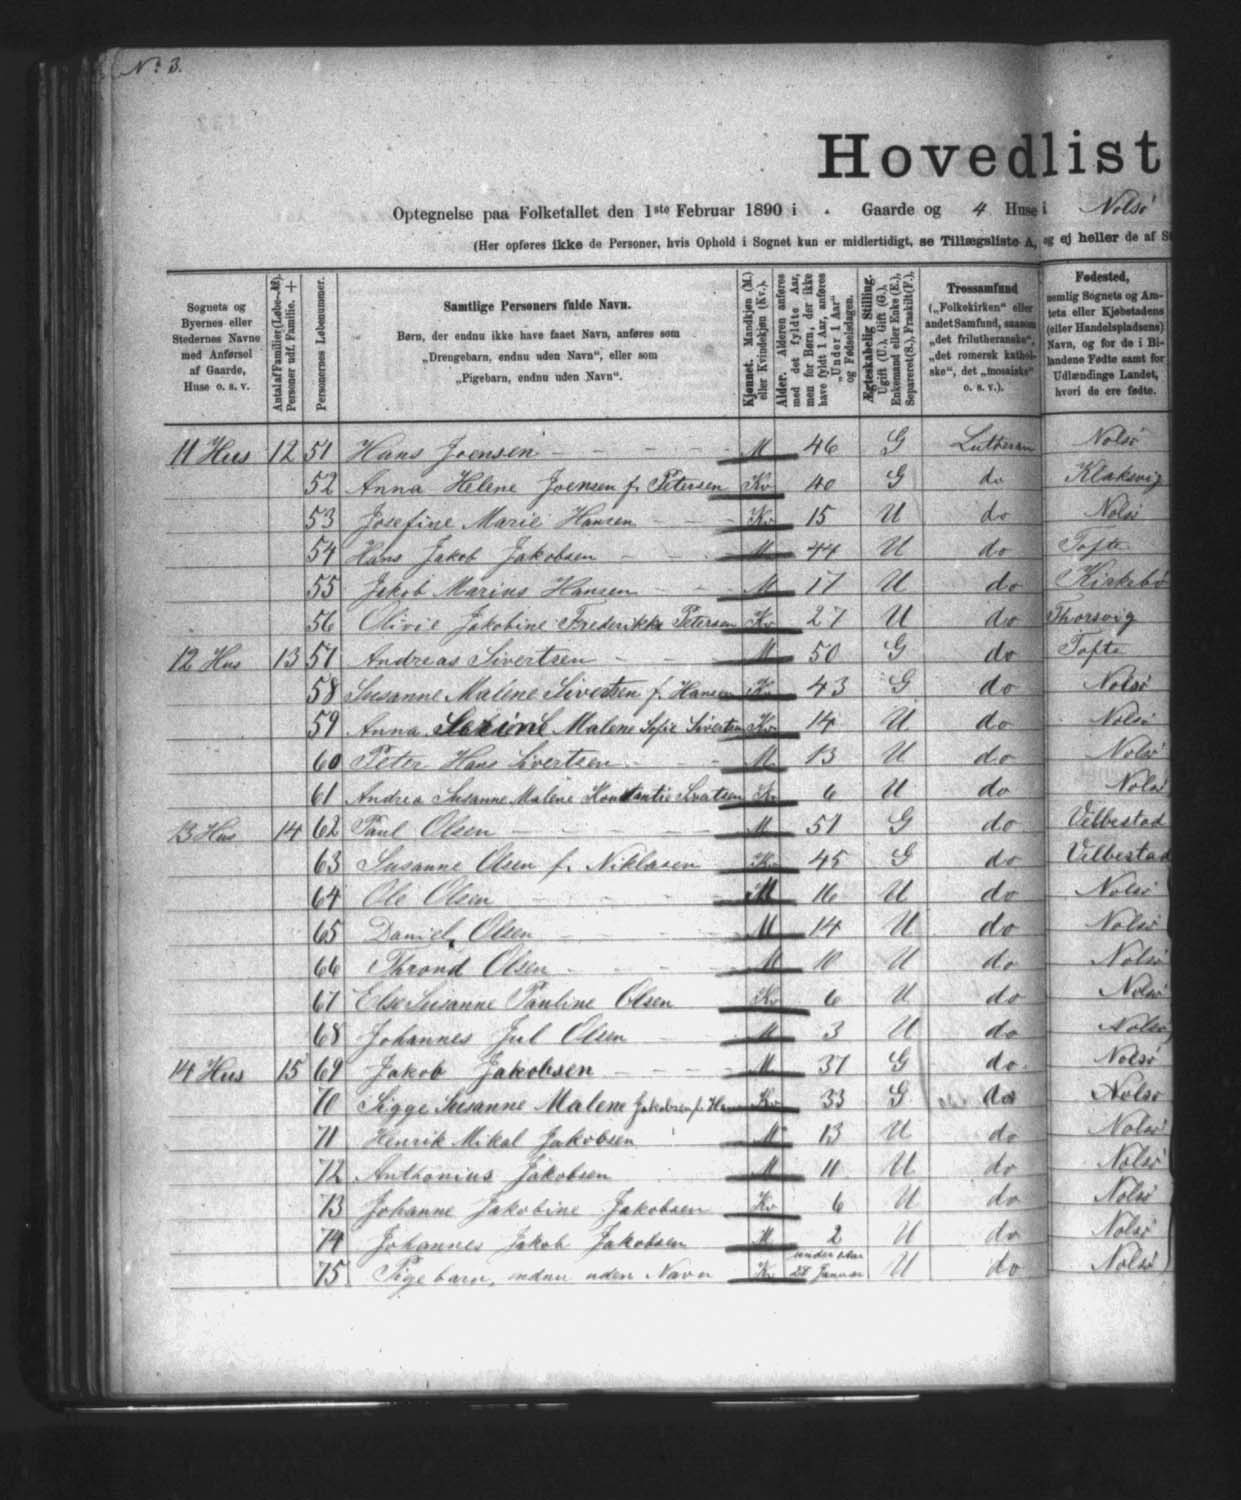 No 3.
Hovedlist
Optegnelse paa Folketallet den 1ste Februar 1890 i . Gaarde og 4 Huse i Nolsö
(Her opføres ikke de Personer, hvis Ophold i Sognet kun er midlertidigt, se Tillægsliste A, og ej heller de af
Sognets og Byernes eller Stedernes Navne med Anførsel af Gaarde, Huse o. s. v.
Antal af Familier (Løbe-№). Personer udf. Familie. +
Personernes Løbenummer.
Samtlige Personers fulde Navn.
Børn, der endnu ikke have faaet Navn, anføres som
„Drengebarn, endnu uden Navn“, eller som
„Pigebarn, endnu uden Navn“.
Kjønnet. Mandkjøn (M.) eller Kvindekjøn (Kv.).
Alder. Alderen anføres med det fyldte Aar, men for Børn, der ikke have fyldt 1 Aar, anføres „Under 1 Aar“ og Fødselsdagen.
Ægteskabelig Stilling. Ugift (U.), Gift (G.), Enkemand eller Enke (E.), Separeret (S.), Fraskilt (F.).
Trossamfund („Folkekirken“ eller andet Samfund, saasom „det frilutheranske“, „det romersk katholske“, det „mosaiske“ o. s. v.).
Fødested, nemlig Sognets og Amtets eller Kjøbstadens (eller Handelspladsens) Navn, og for de i Bilandene Fødte samt for Udlændinge Landet, hvori de ere fødte.
11 Hus 12 51 Hans Joensen - - - - M 46 G Lutheran Nolsö
52 Anna Helene Joensen f. Petersen Kv 40 G do Klaksvig
53 Josefine Marie Hansen - - - Kv 15 U do Nolsö
54 Hans Jakob Jakobsen - - - M 44 U do Tofte
55 Jakob Marius Hansen - - M 17 U do Kirkebö
56 Olivie Jakobine Frederikke Petersen Kv 27 U do Thorsvig
12 Hus 13 57 Andreas Sivertsen - - - M 50 G do Tofte
58 Susanne Malene Sivertsen f. Hansen Kv 43 G do Nolsö
59 Anna Malene Sofie Sivertsen Kv 14 U do Nolsö
60 Peter Hans Sivertsen - - - M 13 U do Nolsö
61 Andrea Susanne Malene Konstantie Sivertsen Kv 6 U do Nolsö
13 Hus 14 62 Paul Olsen - - - - M 51 G do Velbestad
63 Susanne Olsen f. Niklasen Kv 45 G do Velbestad
64 Ole Olsen - - - - M 16 U do Nolsö
65 Daniel Olsen - - - - M 14 U do Nolsö
66 Thrond Olsen - - - - M 10 U do Nolsö
67 Else Susanne Pauline Olsen Kv 6 U do Nolsö
68 Johannes Jul Olsen - - M 3 U do Nolsö
14 Hus 15 69 Jakob Jakobsen - - - - M 37 G do Nolsö
70 Sigge Susanne Malene Jakobsen f. Kv 33 G do Nolsö
71 Henrik Mikal Jakobsen M 13 U do Nolsö
72 Anthonius Jakobsen M 11 U do Nolsö
73 Johanne Jakobine Jakobsen Kv 6 U do Nolsö
74 Johannes Jakob Jakobsen M 2 U do Nolsö
75 Pigebarn, endnu uden Navn Kv under 1 Aar 28 Januar U do Nolsö